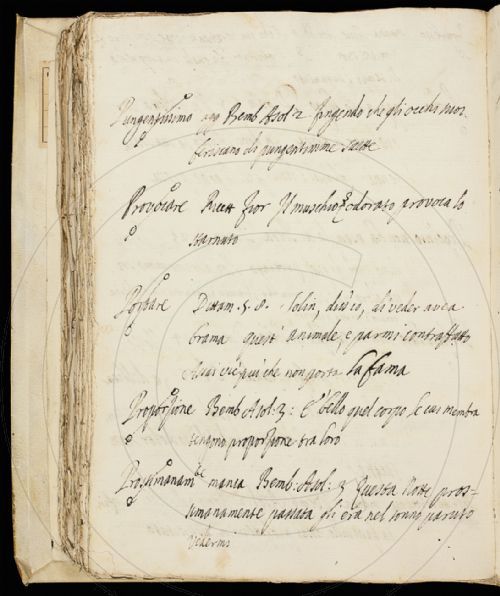 Pungentissimo agg Bemb Asol. 2 fingendo che gli occhi nos
feriscano di pungentissime saette
Provocare Ricett Fior Il muschio odorato, provoca lo
starnuto
Portare Dittam. 5. 8. Solin, diss'io, di veder avea
brama quest' animale, e parmi contraffatto
Assai vie più che non porta la fama
Proporzione Bemb Asol. 3: È bello quel corpo le cui membra
tengono proporzione tra loro
Prossimanam.te Bemb: Asol: 3 Questa Notte pros-
simanamente passata gli era nel sonno paruto
vedermi